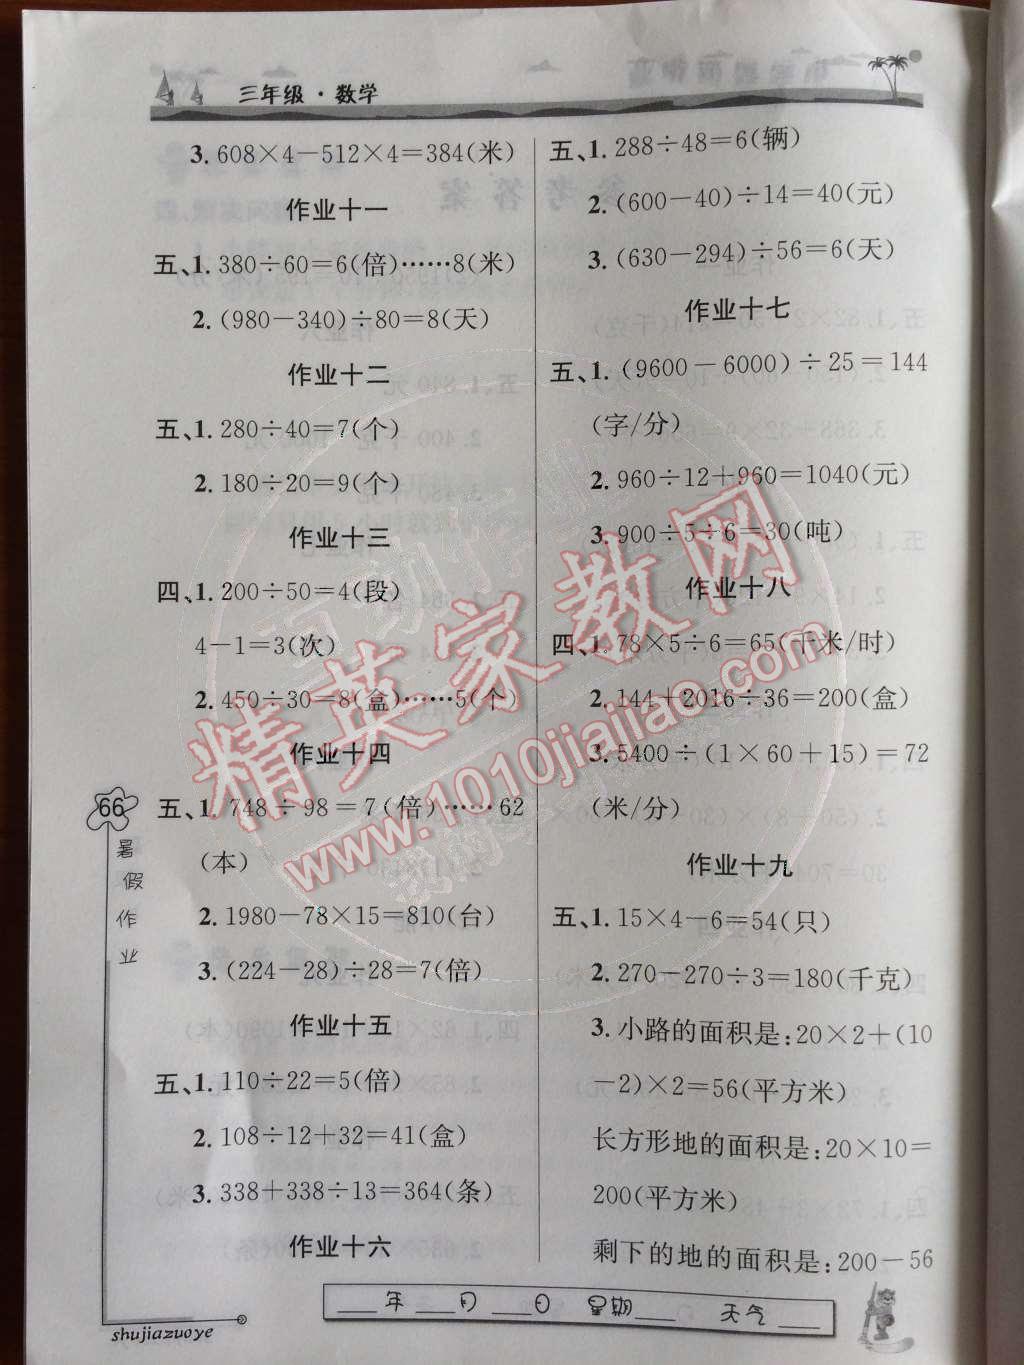 三年级·数学
3. 608×4－512×4＝384(米)
作业十一
五、1. 380÷60＝6(倍)……8(米)
2. (980－340)÷80＝8(天)
作业十二
五、1. 280÷40＝7(个)
2. 180÷20＝9(个)
作业十三
四、1. 200÷50＝4(段)
4－1＝3(次)
2. 450÷30＝8(盒)……5(个)
作业十四
五、1. 748÷98＝7(倍)……62
(本)
2. 1980－78×15＝810(台)
3. (224－28)÷28＝7(倍)
作业十五
五、1. 110÷22＝5(倍)
2. 108÷12＋32＝41(盒)
3. 338＋338÷13＝364(条)
作业十六
五、1. 288÷48＝6(辆)
2. (600－40)÷14＝40(元)
3. (630－294)÷56＝6(天)
作业十七
五、1. (9600－6000)÷25＝144
(字/分)
2. 960÷12＋960＝1040(元)
3. 900÷5÷6＝30(吨)
作业十八
四、1. 78×5÷6＝65(千米/时)
2. 144＋2016÷36＝200(盒)
3. 5400÷(1×60＋15)＝72
(米/分)
作业十九
五、1. 15×4－6＝54(只)
2. 270－270÷3＝180(千克)
3. 小路的面积是:20×2＋(10
－2)×2＝56(平方米)
长方形地的面积是:20×10＝
200(平方米)
剩下的地的面积是:200－56
66
暑假作业
shujiazuoye
年 月 日 星期 天气
精英家教网
www.1010jiajiao.com